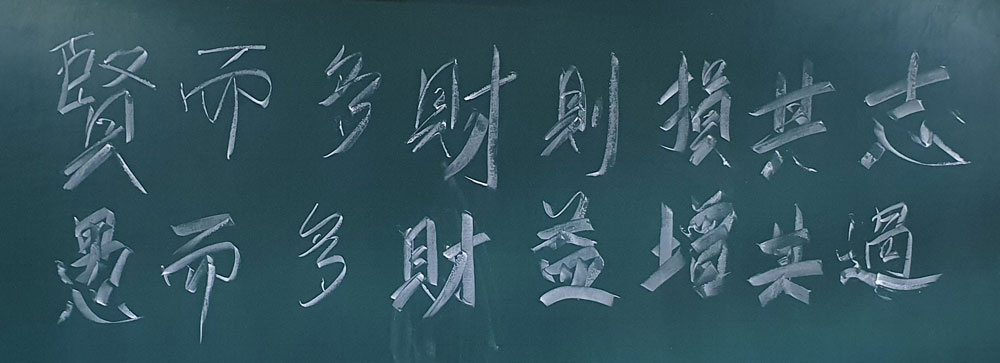 賢而多財則損其志
愚而多財益增其過